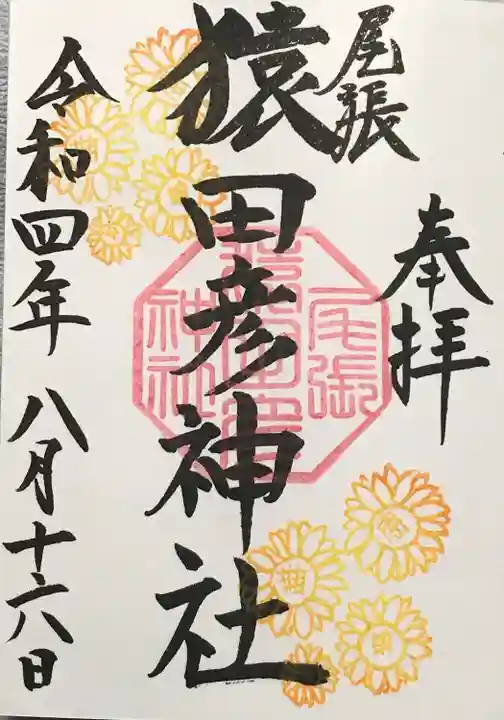 奉拝
尾張
猿田彦神社
尾張
猿田彦
神社
令和四年 八月十六日